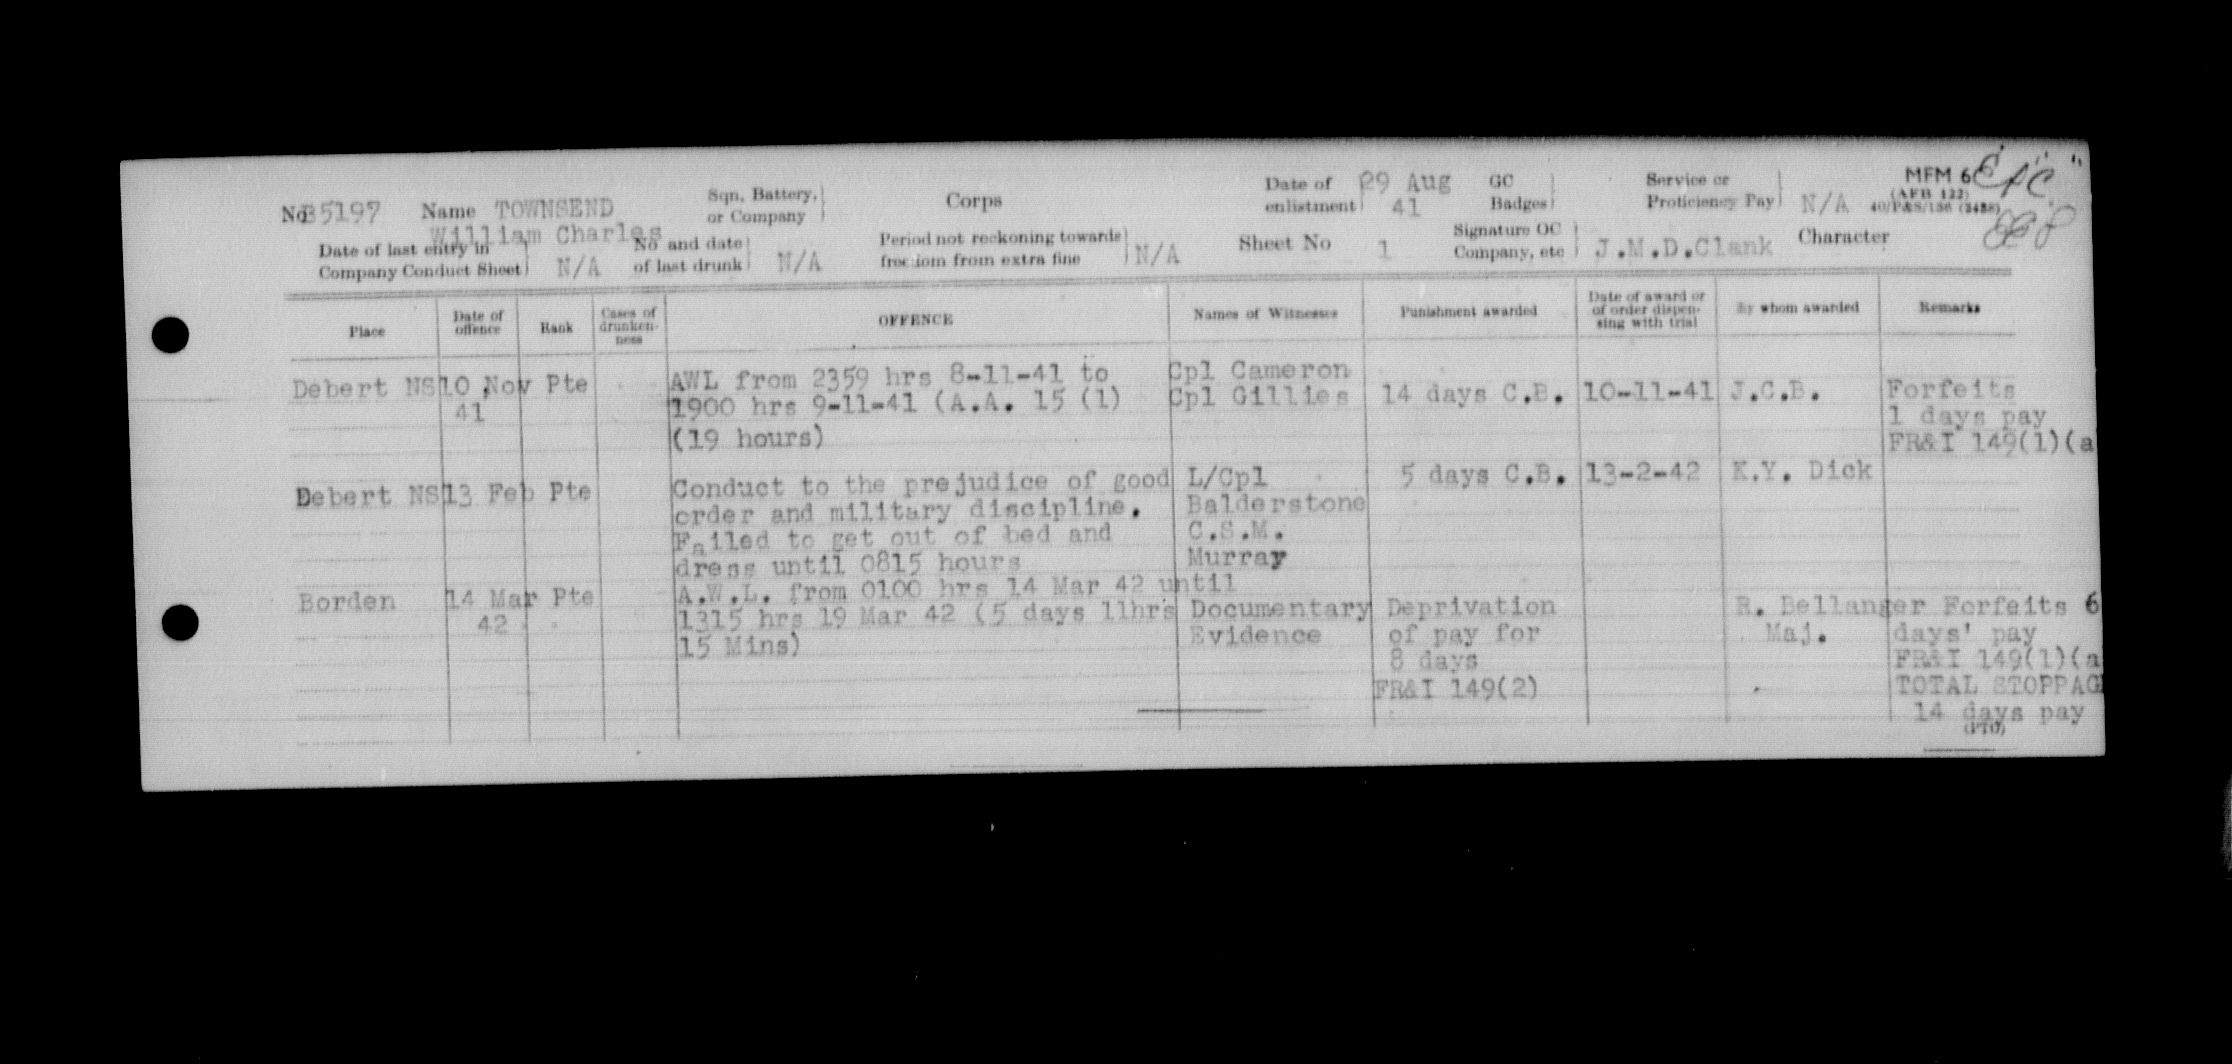 No B5197 Name TOWNSEND Sqn, Battery, or Company Corps Date of enlistment 29 Aug 41 GC Badges Service or Proficiency Pay N/A MFM 6
(AFB 122)
William Charles
Date of last entry in Company Conduct Sheet N/A No and date of last drunk N/A Period not reckoning towards freedom from extra fine N/A Sheet No 1 Signature OC Company, etc J.M.D.Clank Character
Place Date of offence Rank Cases of drunken-ness OFFENCE Names of Witnesses Punishment awarded Date of award or of order dispen-sing with trial By whom awarded Remarks
Debert NS 10 Nov Pte AWL from 2359 hrs 8-11-41 to Cpl Cameron
41 1900 hrs 9-11-41 (A.A. 15 (1) Cpl Gillies 14 days C.B. 10-11-41 J.C.B. Forfeits
(19 hours) 1 days pay
FR&I 149(1)(a
Debert NS 13 Feb Pte Conduct to the prejudice of good L/Cpl 5 days C.B. 13-2-42 K.Y. Dick
order and military discipline. Balderstone
Failed to get out of bed and C.S.M.
dress until 0815 hours Murray
Borden 14 Mar Pte A.W.L. from 0100 hrs 14 Mar 42 until
42 1315 hrs 19 Mar 42 (5 days 11hrs Documentary Deprivation R. Bellanger Forfeits 6
15 Mins) Evidence of pay for Maj. days' pay
8 days FR&I 149(1)(a
FR&I 149(2) TOTAL STOPPAG
14 days pay